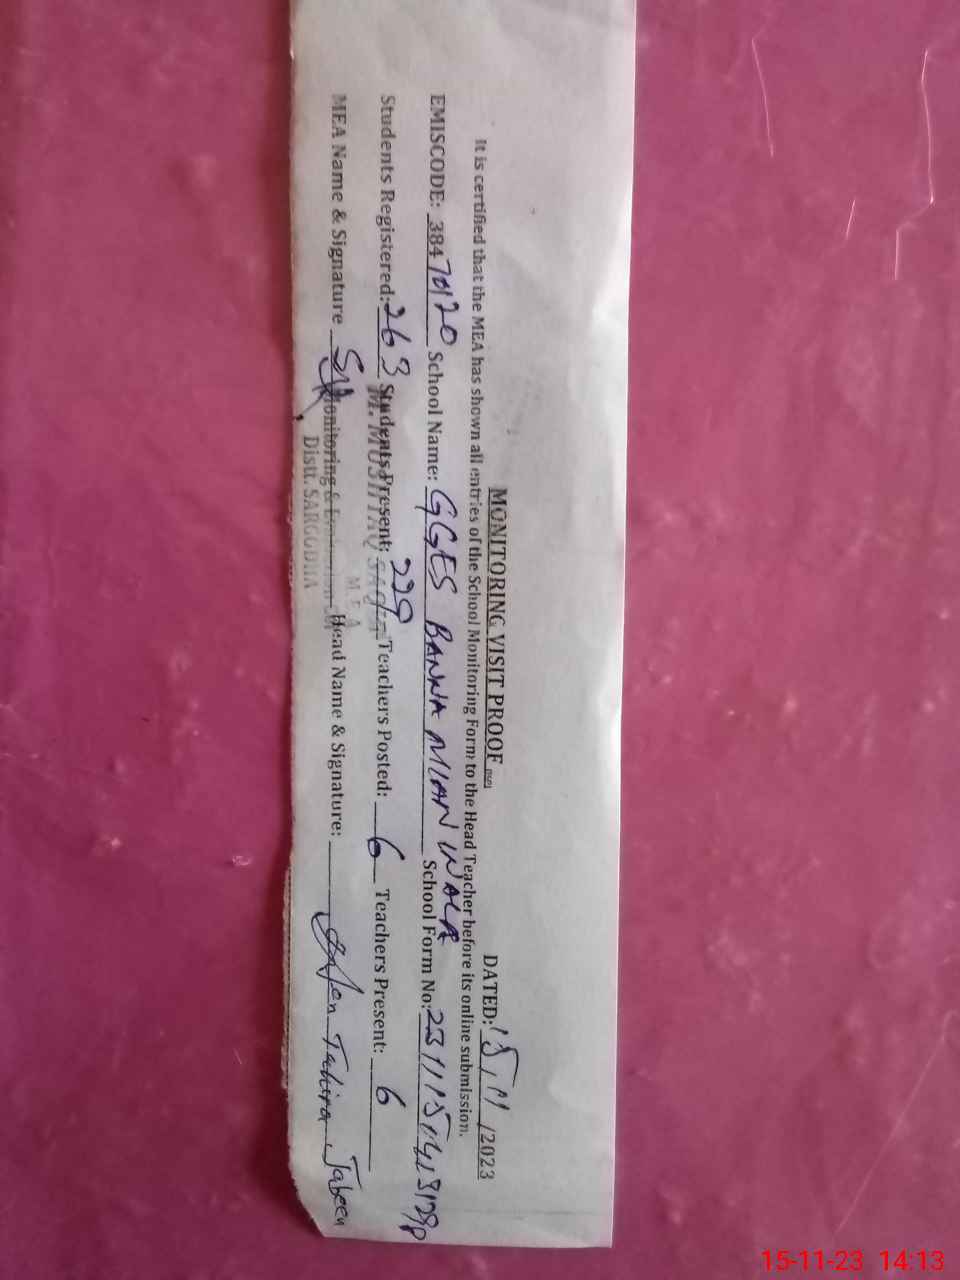 MONITORING VISIT PROOF DATED: 15/11/2023
It is certified that the MEA has shown all entries of the School Monitoring Form to the Head Teacher before its online submission.
EMISCODE: 38470120 School Name: GGES BANNA MIAN WALA School Form No:
Students Registered: 263 Students Present: 229 Teachers Posted: 6 Teachers Present: 6
M. MUSHTAQ
M E A
MEA Name & Signature Head Name & Signature: Tahira Jabeen
Monitoring &
Distt. SARGODHA
15-11-23 14:13